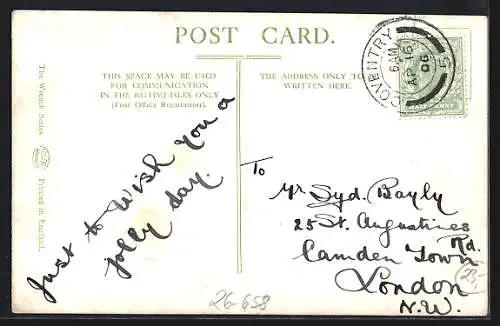 POST CARD.
THIS SPACE MAY BE USED
FOR COMMUNICATION
IN THE BRITISH ISLES ONLY
(Post Office Regulation).
THE ADDRESS ONLY TO
WRITTEN HERE.
COVENTRY
6 AM
AP 16
06
HALFPENNY
The Wrench Series
Printed in England.
Just to wish you a
jolly day.
To
Mr Syd. Bayly
25 St. Augustines
Rd.
Camden Town
London
N.W.
23,-
26-658